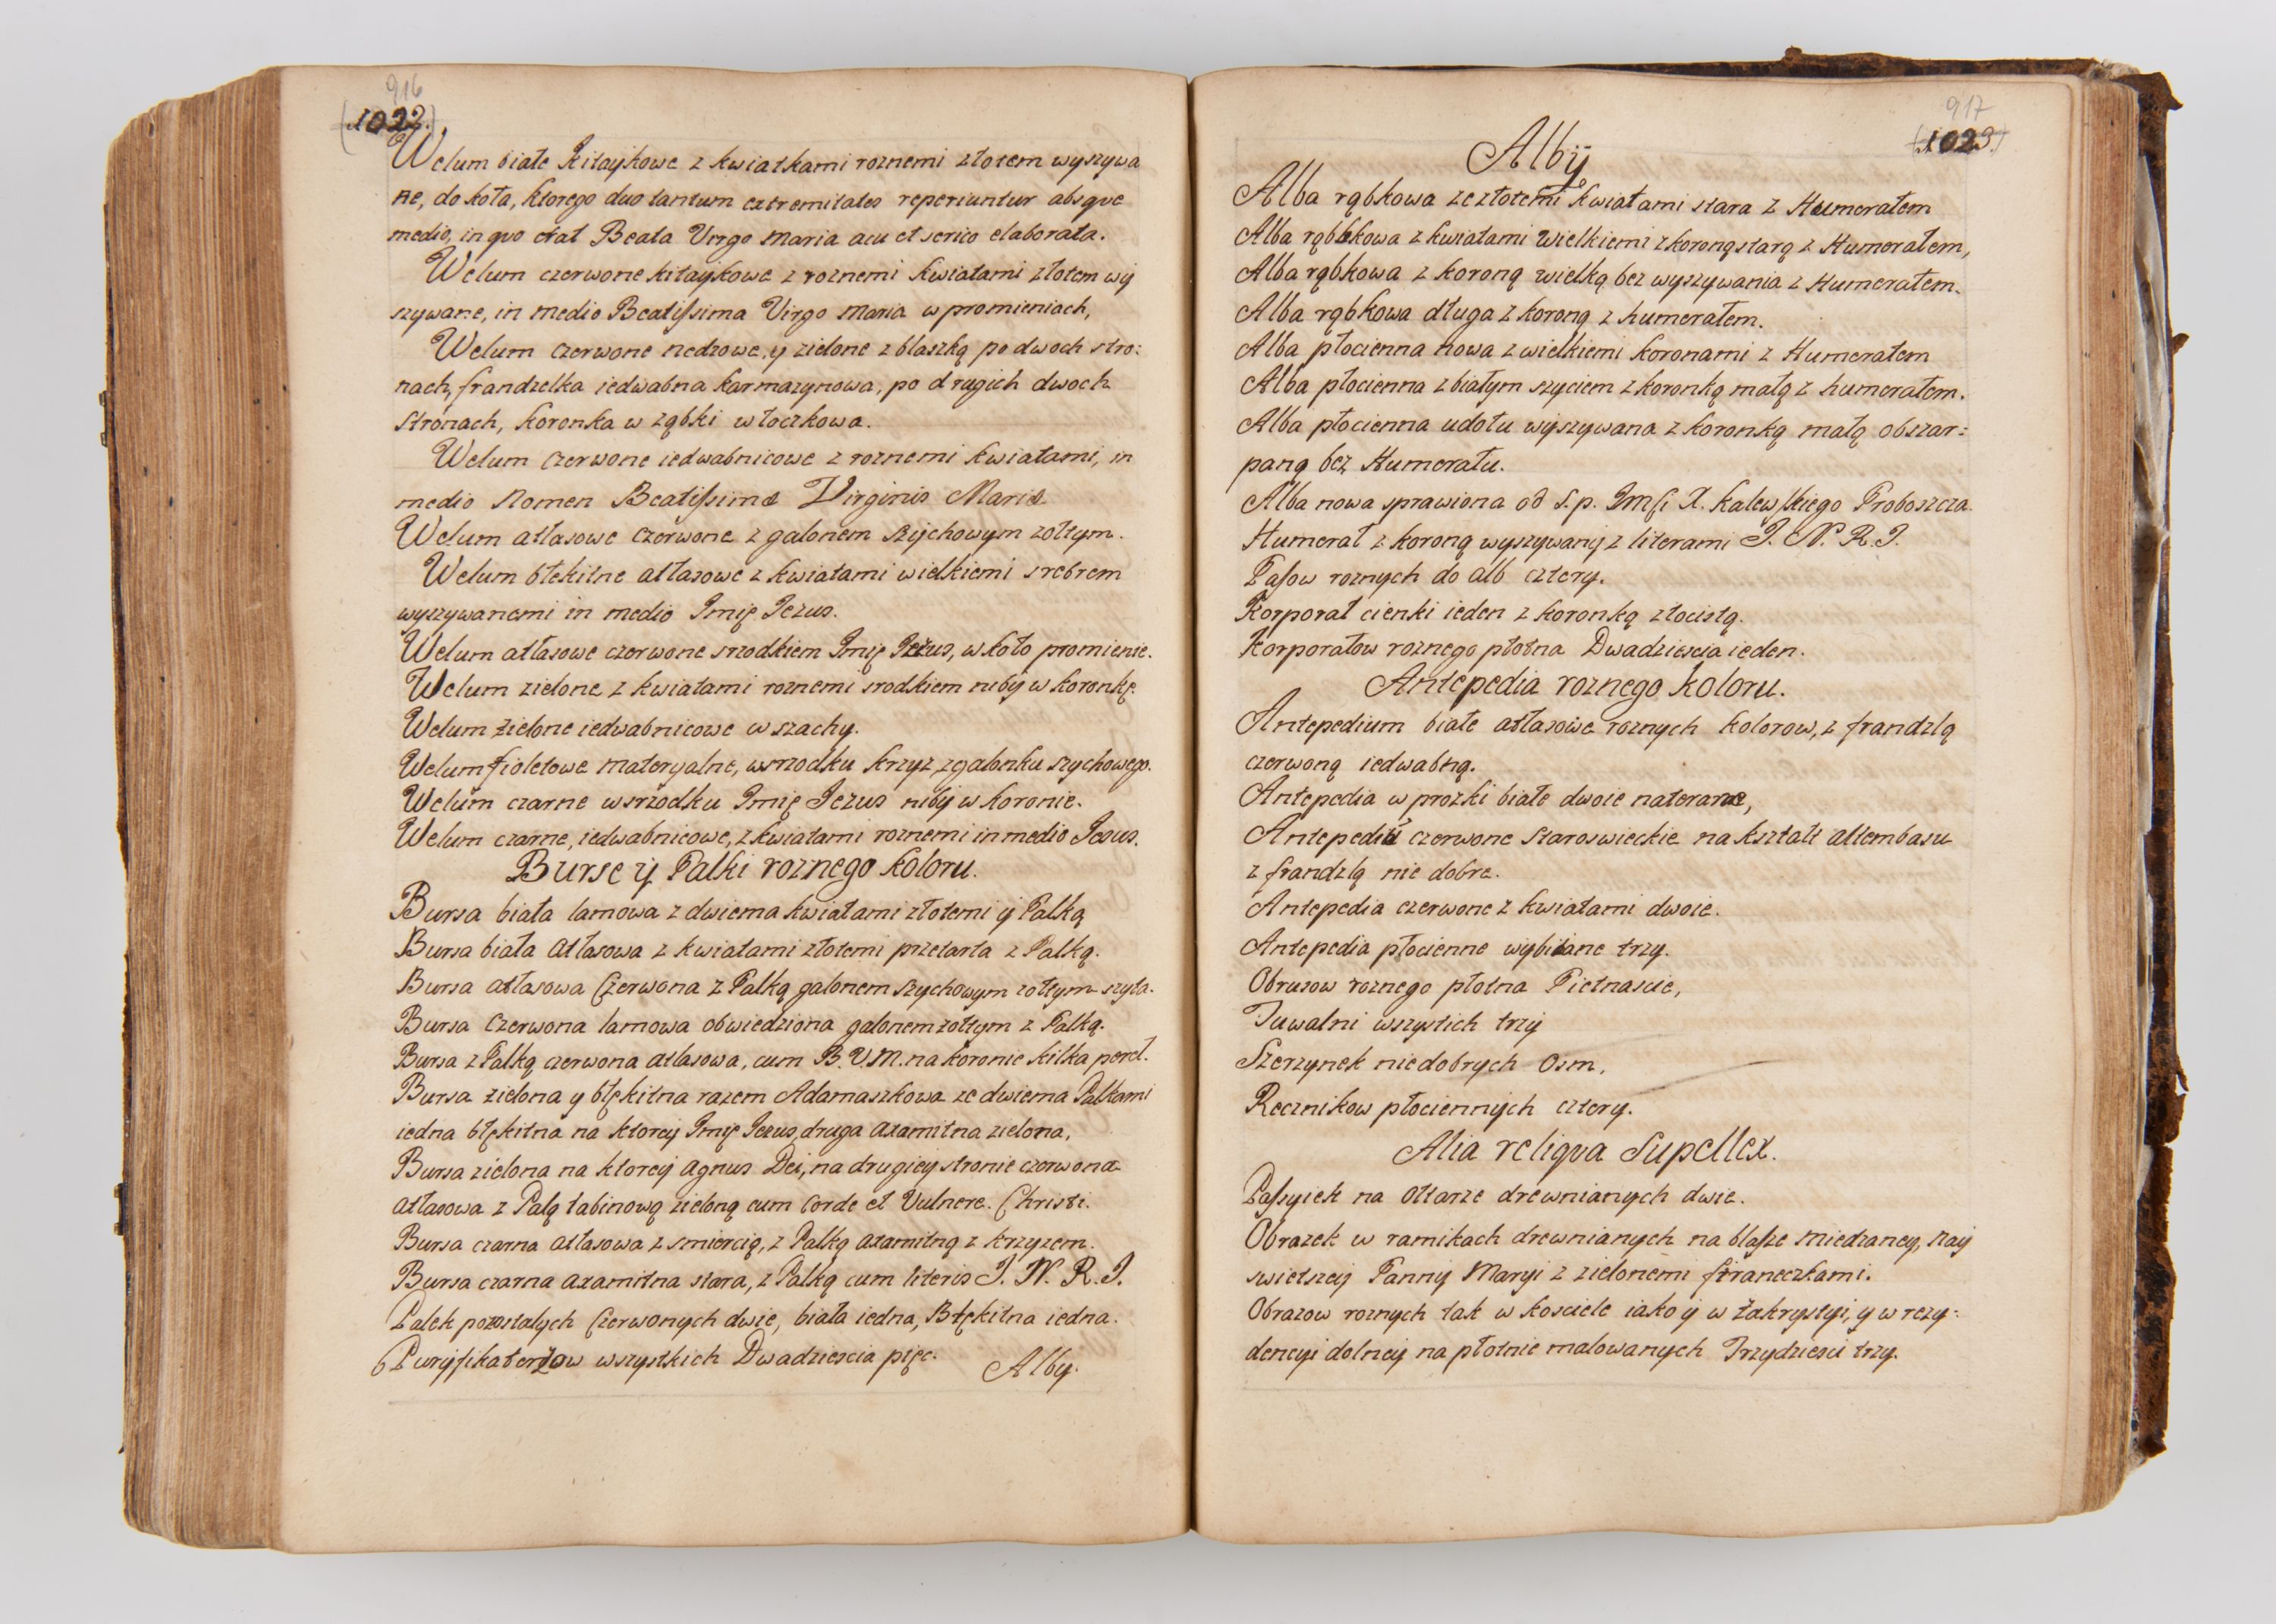 916
(1022.)
Welum białe Kitaykowe z kwiatkami roznemi złotem wyszywa
ne, do koła, ktorego duo tantum extremitates reperiuntur absque
medio, in quo erat Beata Virgo Maria acu et serico elaborata.
Welum czerwone kitaykowe z roznemi kwiatami złotem wy
szywane, in medio Beatissima Virgo Maria w promieniach,
Welum czerwone nedzowe, y zielone z blaszką po dwoch stro:
nach, frandzelka iedwabna karmazynowa, po drugich dwoch
stronach, koronka w ząbki włoczkowa.
Welum czerwone iedwabnicowe z roznemi kwiatami, in
medio Nomen Beatissimæ Virginis Mariæ
Welum atłasowe czerwone z galonem szychowym zołtym.
Welum błekitne atłasowe z kwiatami wielkiemi srebrem
wyszywanemi in medio Imię Jezus.
Welum atłasowe czerwone srzodkiem Imię Jezus, w koło promienie.
Welum zielone z kwiatami roznemi srodkiem niby w koronkę
Welum zielone iedwabnicowe w szachy.
Welum fioletowe materyalne, wsrzodku krzyz z galonku szychowego.
Welum czarne wsrzodku Imię Jezus niby w koronie.
Welum czarne, iedwabnicowe, z kwiatami roznemi in medio Jesus.
Burse ÿ Palki roznego koloru.
Bursa biała lamowa z dwiema kwiatami złotemi ÿ Palką
Bursa biała atłasowa z kwiatami złotemi przetarta z Palką.
Bursa atłasowa Czerwona z Palką galonem szychowym zołtym szyta.
Bursa Czerwona lamowa obwiedziona galonem zołtym z Palką.
Bursa z Palką czerwona atłasowa, cum B. V. M. na koronie kilka pereł.
Bursa zielona y błękitna razem Adamaszkowa ze dwiema Palkami
iedna błękitna na ktorey Imię Jezus, druga axamitna zielona,
Bursa zielona na ktorey Agnus Dei, na drugiey stronie czerwona
atłasowa z Palą tabinową zieloną cum Corde et Vulnere Christi.
Bursa czarna atłasowa z smiercią, z Palką axamitną z krzyzem.
Bursa czarna axamitna stara, z Palką cum literis J. N. R. J.
Palek pozostałych Czerwonych dwie, biała iedna, Błękitna iedna.
Puryfikaterzow wszystkich Dwadziescia pięc.
Alby.
917
(1023.)
Albÿ
Alba rąbkowa ze złotemi kwiatami stara z Humerałem
Alba rąbkowa z kwiatami wielkiemi z koroną starą z Humerałem,
Alba rąbkowa z koroną wielką bez wyszywania z Humerałem.
Alba rąbkowa długa z koroną z humerałem.
Alba płocienna nowa z wielkiemi koronami z Humerałem
Alba płocienna z białym szyciem z koronką małą z humerałem.
Alba płocienna udołu wyszywana z koronką małą obszar:
paną bez Humerału.
Alba nowa sprawiona od S. p. Jmsi X. Kalewskiego Proboszcza.
Humerał z koroną wyszywany z literami J. N. R. J.
Pasow roznych do alb cztery.
Korporał cienki ieden z koronką złocistą.
Korporałow roznego płotna Dwadziescia ieden.
Antepedia roznego koloru.
Antepedium białe atłasowe roznych kolorow, z frandzlą
czerwoną iedwabną.
Antepedia w prozki białe dwoie naterane,
Antepediũ czerwone Staroswieckie na kształt altembasu
z frandzlą nie dobre.
Antepedia czerwone z kwiatami dwoie.
Antepedia płocienne wybiiane trzy.
Obrusow roznego płotna Pietnascie,
Tuwalni wszystich trzÿ
Szerzynek niedobrych Osm,
Recznikow płociennych cztery.
Alia reliqua Supellex.
Passyiek na Ołtarze drewnianych dwie.
Obrazek w ramikach drewnianych na blasze miedzaney, Nay
swietszey Panny Maryi z zielonemi firaneczkami.
Obrazow roznych tak w kosciele iako y w zakrystyi, y w rezy:
dencyi dolney na płotnie malowanych Trzydziesci trzy.